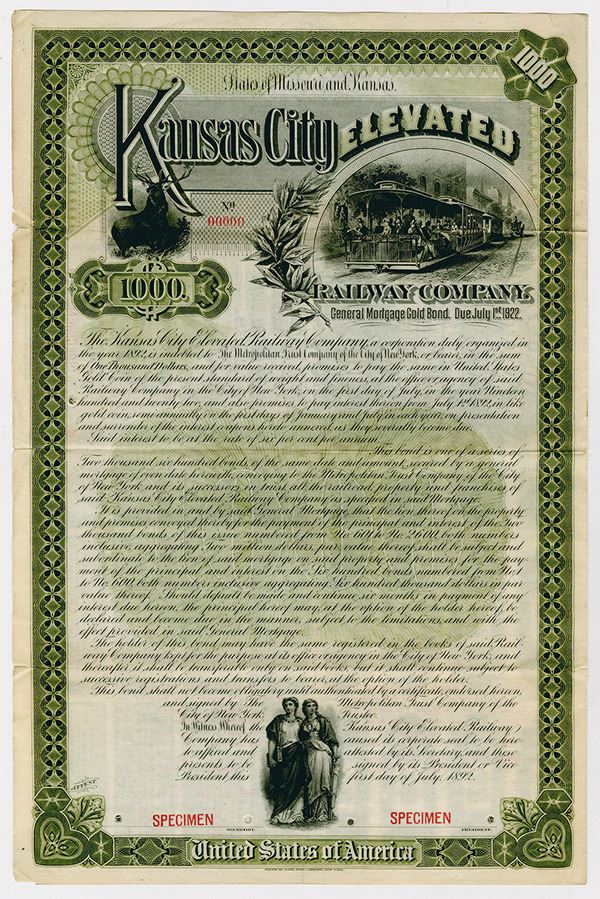 1000
States of Missouri and Kansas.
Kansas City ELEVATED
No
00000
1000.
RAILWAY COMPANY.
General Mortgage Gold Bond. Due July 1st 1922.
The Kansas City Elevated Railway Company, a corporation duly organized in
the year 1892, is indebted to The Metropolitan Trust Company of the City of New York, or bearer, in the sum
of One Thousand Dollars, and for value received, promises to pay the same in United States
Gold Coin of the present standard of weight and fineness, at the office or agency of said
Railway Company in the City of New York, on the first day of July, in the year Nineteen
hundred and twenty two, and also promises to pay interest thereon from July 1st 1892, in like
gold coin, semi-annually on the first days of January and July in each year, on presentation
and surrender of the interest coupons hereto annexed, as they severally become due.
Said interest to be at the rate of six per cent. per annum.
This bond is one of a series of
Two thousand six hundred bonds, of the same date and amount, secured by a general
mortgage of even date herewith, conveying to the Metropolitan Trust Company of the City
of New York and its successors, in trust, all the railroad, property and franchises of
said Kansas City Elevated Railway Company as specified in said Mortgage.
It is provided in and by said General Mortgage, that the lien thereof on the property
and premises conveyed thereby for the payment of the principal and interest of the Two
thousand bonds of this issue numbered from No. 601 to No. 2600, both numbers
inclusive, aggregating Two million dollars, par value thereof shall be subject and
subordinate to the lien of said mortgage on said property and premises for the pay-
ment of the principal and interest on the Six hundred bonds numbered from No. 1
to No. 600, both numbers inclusive aggregating Six hundred thousand dollars in par
value thereof. Should default be made and continue six months in payment of any
interest due hereon, the principal hereof may, at the option of the holder hereof, be
declared and become due in the manner, subject to the limitations, and with the
effect provided in said General Mortgage.
The holder of this bond may have the same registered in the books of said Rail-
way Company kept for the purpose at its office or agency in the City of New York, and
thereafter it shall be transferable only on said books, but it shall continue subject to
successive registrations and transfers to bearer, at the option of the holder.
This bond shall not become obligatory until authenticated by a certificate, endorsed hereon,
and signed by The Metropolitan Trust Company of the
City of New York, Trustee.
In Witness Whereof the Kansas City Elevated Railway
Company has caused its corporate seal to be here-
to affixed and attested by its Secretary, and these
presents to be signed by its President or Vice
President this first day of July, 1892.
ATTEST
SPECIMEN SPECIMEN
SECRETARY. PRESIDENT.
United States of America